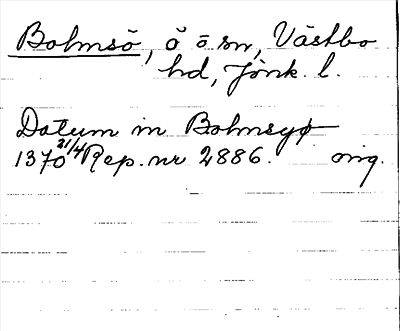 Bolmsö, ö ö sn, Västbo
hd, Jönk. l.
Datum in Bolmsyø
1370 21/4 Rep. nr 2886. orig.